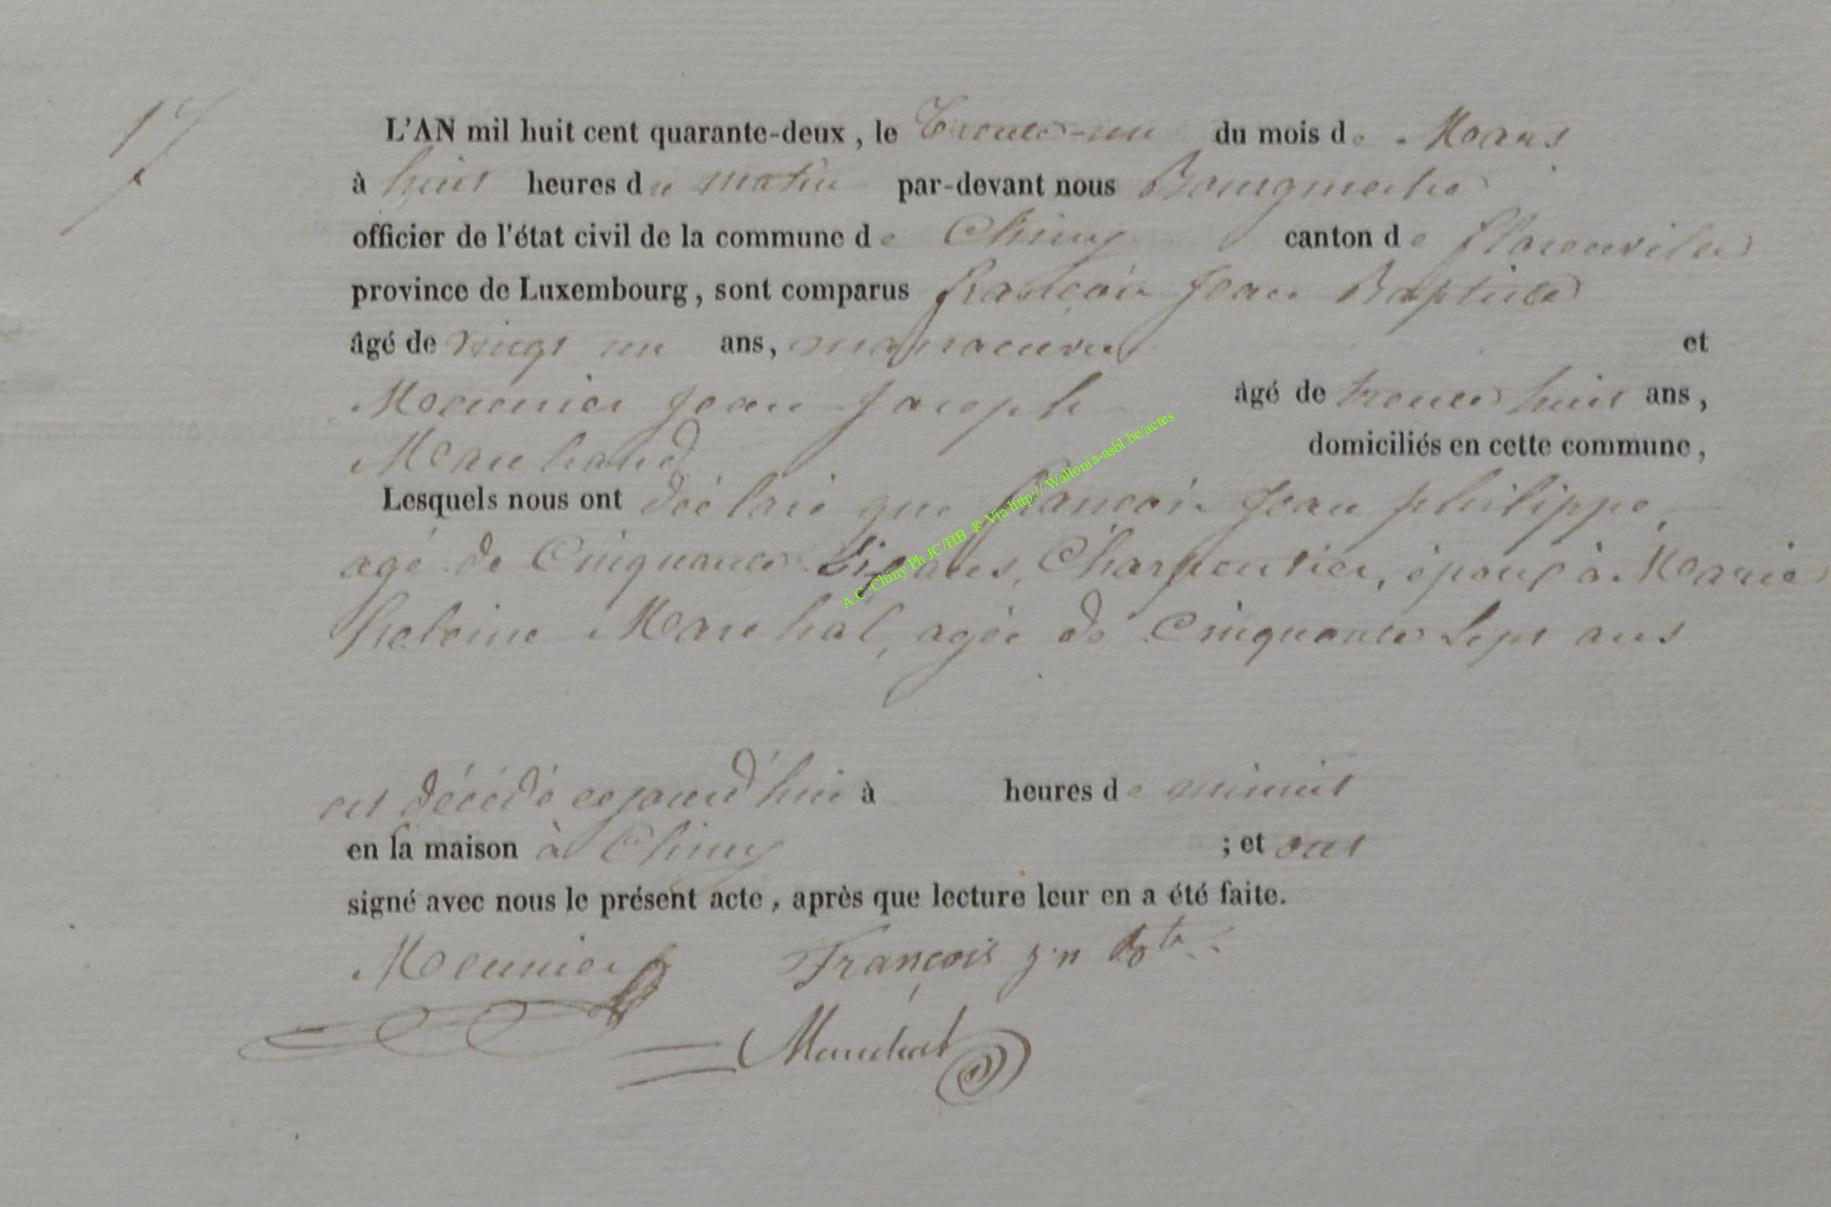 17
L'AN mil huit cent quarante-deux, le Trente-un du mois de Mars
à huit heures du matin par-devant nous Bourgmestre
officier de l'état civil de la commune de Chiny canton de florenville
province de Luxembourg, sont comparus françois Jean Baptiste
âgé de vingt un ans, manoeuvre et
Meunier Jean Joseph âgé de trente huit ans,
Marchand domiciliés en cette commune,
Lesquels nous ont déclaré que françois Jean philippe,
agé de Cinquante Six ans, Charpentier, époux à Marie
heleine Marechal, agée de Cinquante Sept ans
est décédé cejourd'hui à heures de minuit
en la maison à Chiny ; et ont
signé avec nous le présent acte, après que lecture leur en a été faite.
Meunier François J.n Bte
Marechal
A C Chiny Ph JC/HB ® Via http:// Wallonia-asbl be/actes